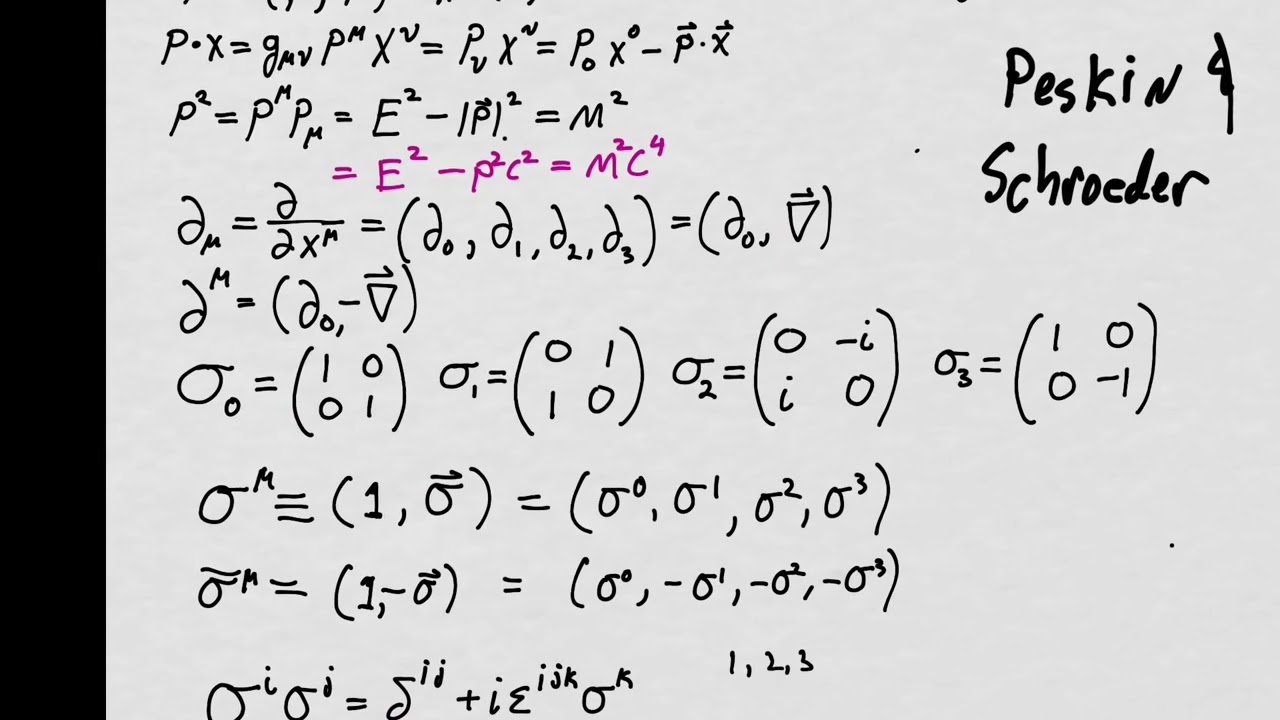 P·x = g_μν P^μ X^ν = P_ν X^ν = P_0 x^0 - p⃗·x⃗
P^2 = P^μ P_μ = E^2 - |p⃗|^2 = M^2
= E^2 - p^2c^2 = M^2C^4
Peskin &
Schroeder
∂_μ = ∂/∂x^μ = (∂_0, ∂_1, ∂_2, ∂_3) = (∂_0, ∇⃗)
∂^μ = (∂_0, -∇⃗)
σ_0 = (1 0 / 0 1) σ_1 = (0 1 / 1 0) σ_2 = (0 -i / i 0) σ_3 = (1 0 / 0 -1)
σ^μ ≡ (1, σ⃗) = (σ^0, σ^1, σ^2, σ^3)
σ̄^μ = (1, -σ⃗) = (σ^0, -σ^1, -σ^2, -σ^3)
1, 2, 3
σ^i σ^j = δ^ij + i ε^ijk σ^k